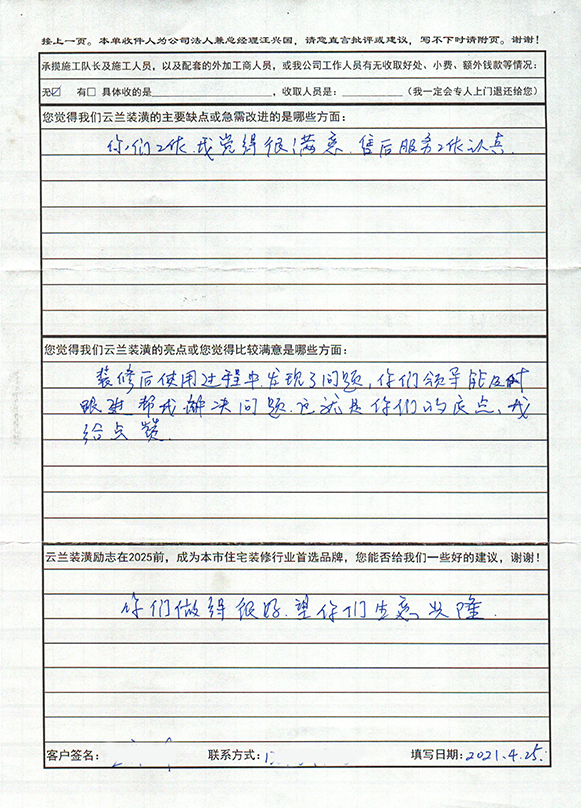 接上一页。本单收件人为公司法人兼总经理汪兴国，请您直言批评或建议，写不下时请附页。谢谢！
承揽施工队长及施工人员，以及配套的外加工商人员，或我公司工作人员有无收取好处、小费、额外钱款等情况：
无☑ 有□ 具体收的是____________，收取人员是：____________（我一定会专人上门退还给您）
您觉得我们云兰装潢的主要缺点或急需改进的是哪些方面：
你们工作，我觉得很满意，售后服务工作认真.
您觉得我们云兰装潢的亮点或您觉得比较满意是哪些方面：
装修后使用过程中发现了问题，你们领导能及时
跟进帮我解决问题.这就是你们的亮点、我
给点赞.
云兰装潢励志在2025前，成为本市住宅装修行业首选品牌，您能否给我们一些好的建议，谢谢！
你们做得很好.望你们生意兴隆.
客户签名： 联系方式： 填写日期：2021.4.25.